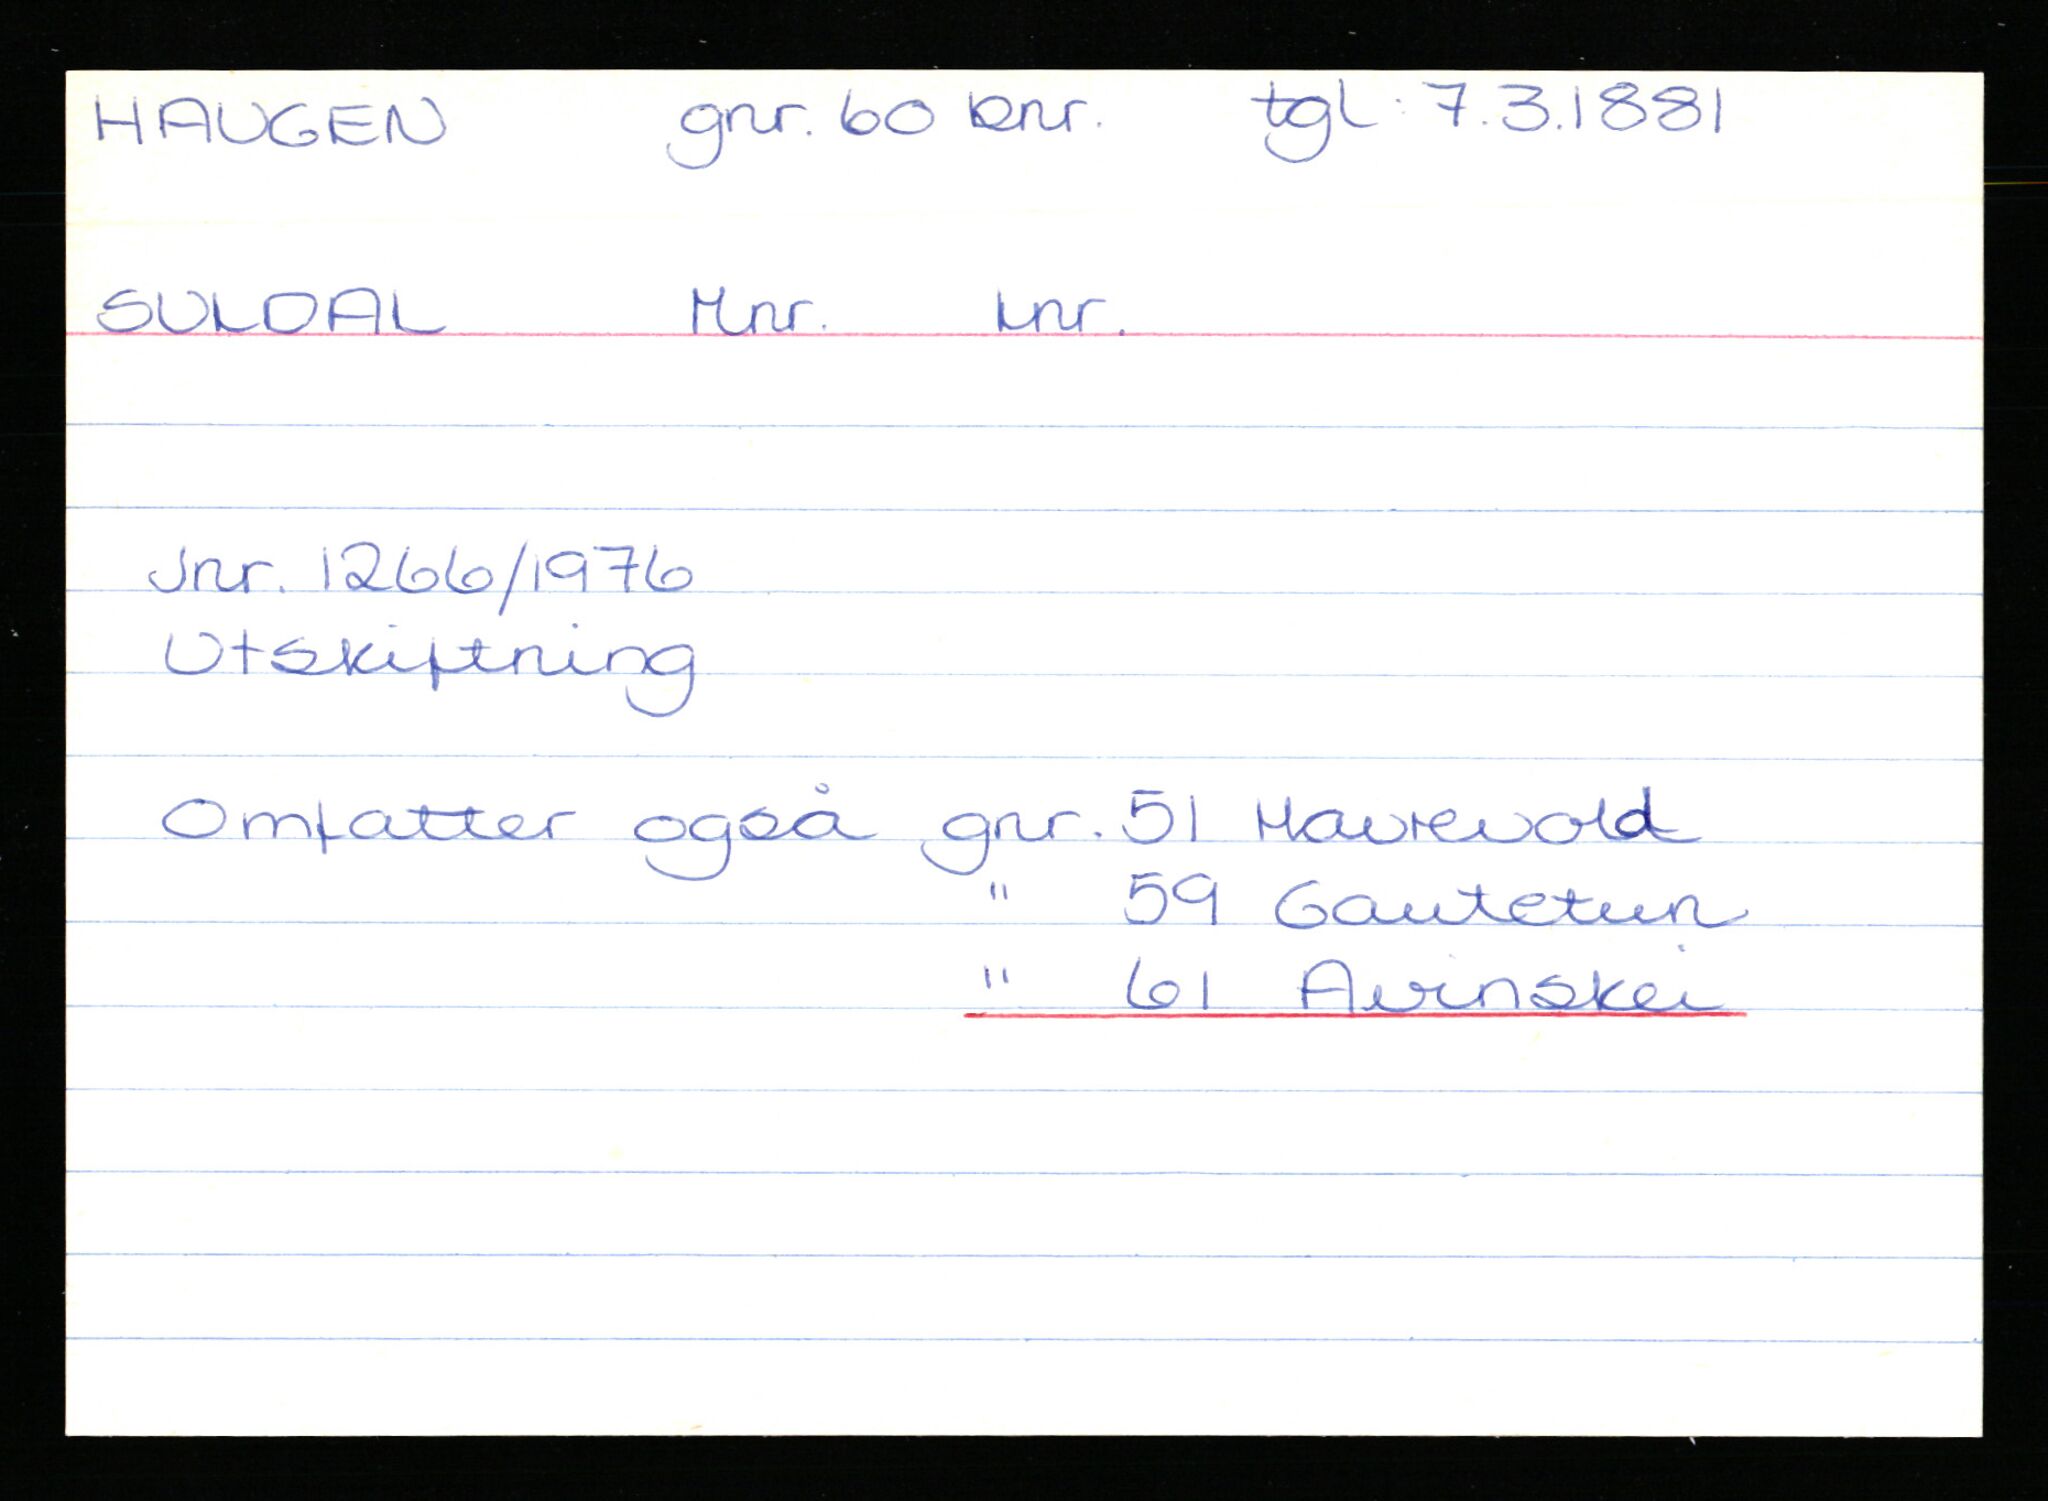 HAUGEN gnr. 60 bnr. tgl: 7.3.1881
SULDAL Mnr. Lnr.
Jnr. 1266/1976
Utskiftning
Omfatter også gnr. 51 Havrevold
" 59 Gautetun
" 61 Avinskei